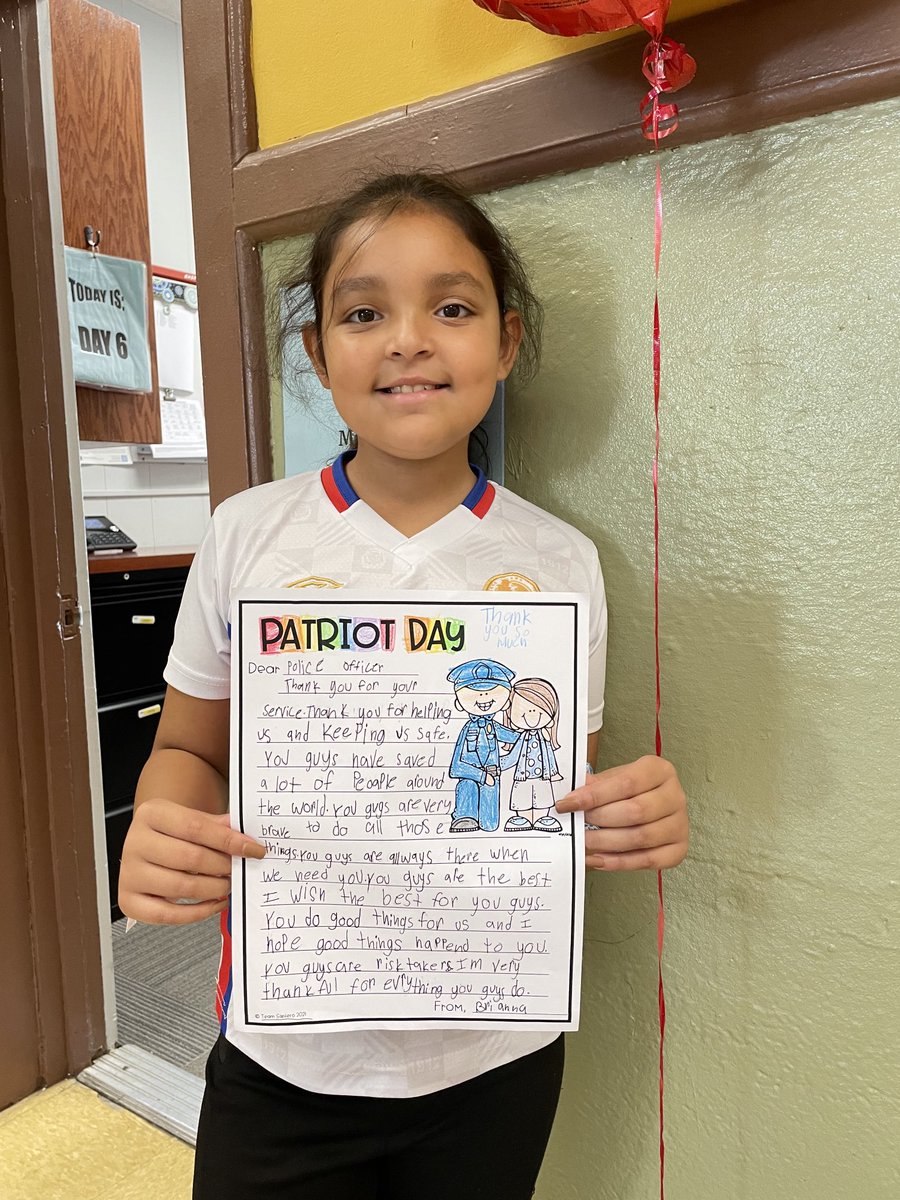 TODAY IS:
DAY 6
PATRIOT DAY
Thank
you so
much
Dear Police officer
Thank you for your
service. Thank you for helping
us and keeping us safe.
You guys have saved
a lot of Peoaple around
the world. You guys are very
brave to do all those
things. You guys are always there when
we need you. You guys are the best
I wish the best for you guys.
You do good things for us and I
hope good things happend to you.
You guys are risk takers I'm very
thankfull for evrything you guys do.
From, Brianna
© Team Santero 2021